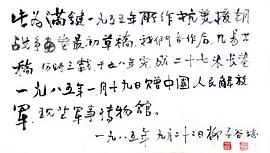 此为满健一九五五年所作抗美援朝
战争画卷最初草稿，我们合作后，几易其
稿历时三载，于五八年完成二十七米长卷
一九八五年一月十九日赠中国人民解放
军，现藏军事博物馆。
一九八五年九月二十二日柳子谷志